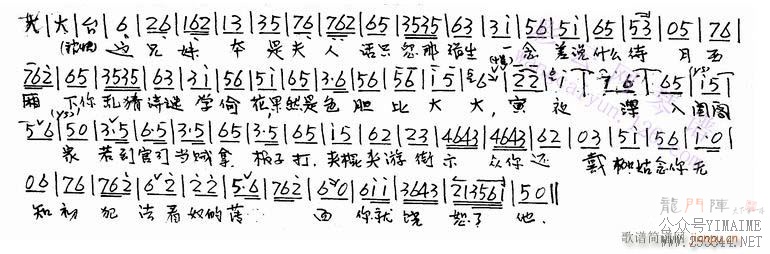 大|大|台|6|26|162|13|35|76|762|65|3535|63|3i|56|5i|65|53|05|76|
这兄妹本是夫人话只怨那张生一念差说什么待月西
762|65|3535|63|3i|56|5i|65|3·6|56|56|i5|6|22|i|76|65|i5|
厢下你乱猜诗谜学偷花果然是色胆比天大,寅夜深入闺阁
56|50|3·5|6·5|3·5|65|3·5|65|i5|62|23|4643|4643|62|03|5i|56|i·0|
家若到官司当贼拿板子打,夹棍夹游街示众你还戴枷姑念你无
06|76|762|62|22|5·6|762|6·0|6ii|3643|213561|50‖
知初犯法看奴的薄面你就饶恕了他.
龍門陣
公众号YIMAIME
歌谱简谱网 jianpu.cn